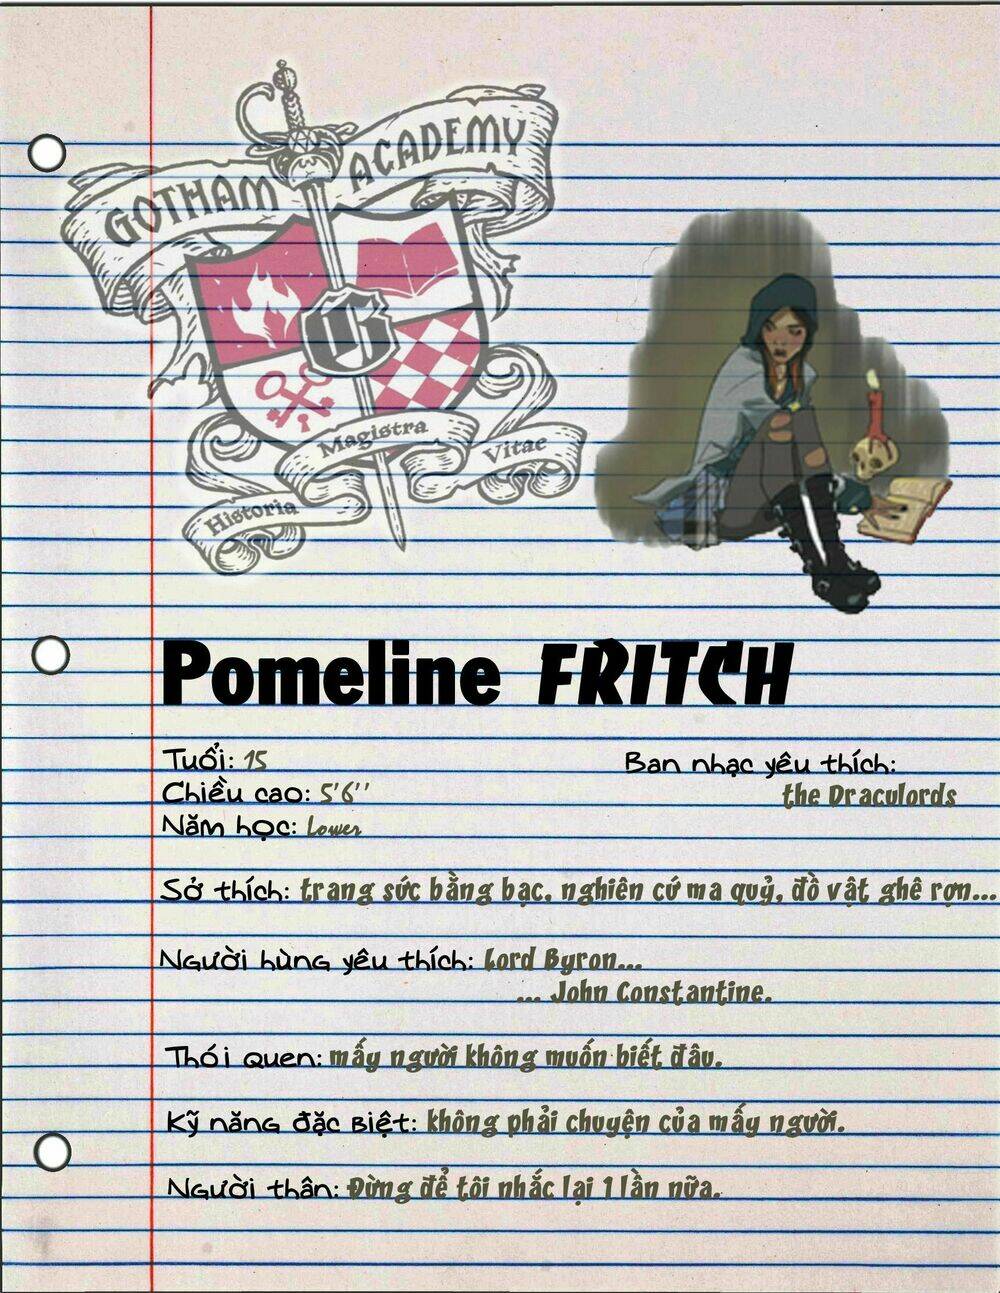 GOTHAM ACADEMY
Historia Magistra Vitae
Pomeline FRITCH
Tuổi: 15
Chiều cao: 5'6''
Năm học: Lower
Ban nhạc yêu thích:
the Draculords
Sở thích: trang sức bằng bạc, nghiên cứ ma quỷ, đồ vật ghê rợn...
Người hùng yêu thích: Lord Byron...
... John Constantine.
Thói quen: mấy người không muốn biết đâu.
Kỹ năng đặc biệt: không phải chuyện của mấy người.
Người thân: Đừng để tôi nhắc lại 1 lần nữa.